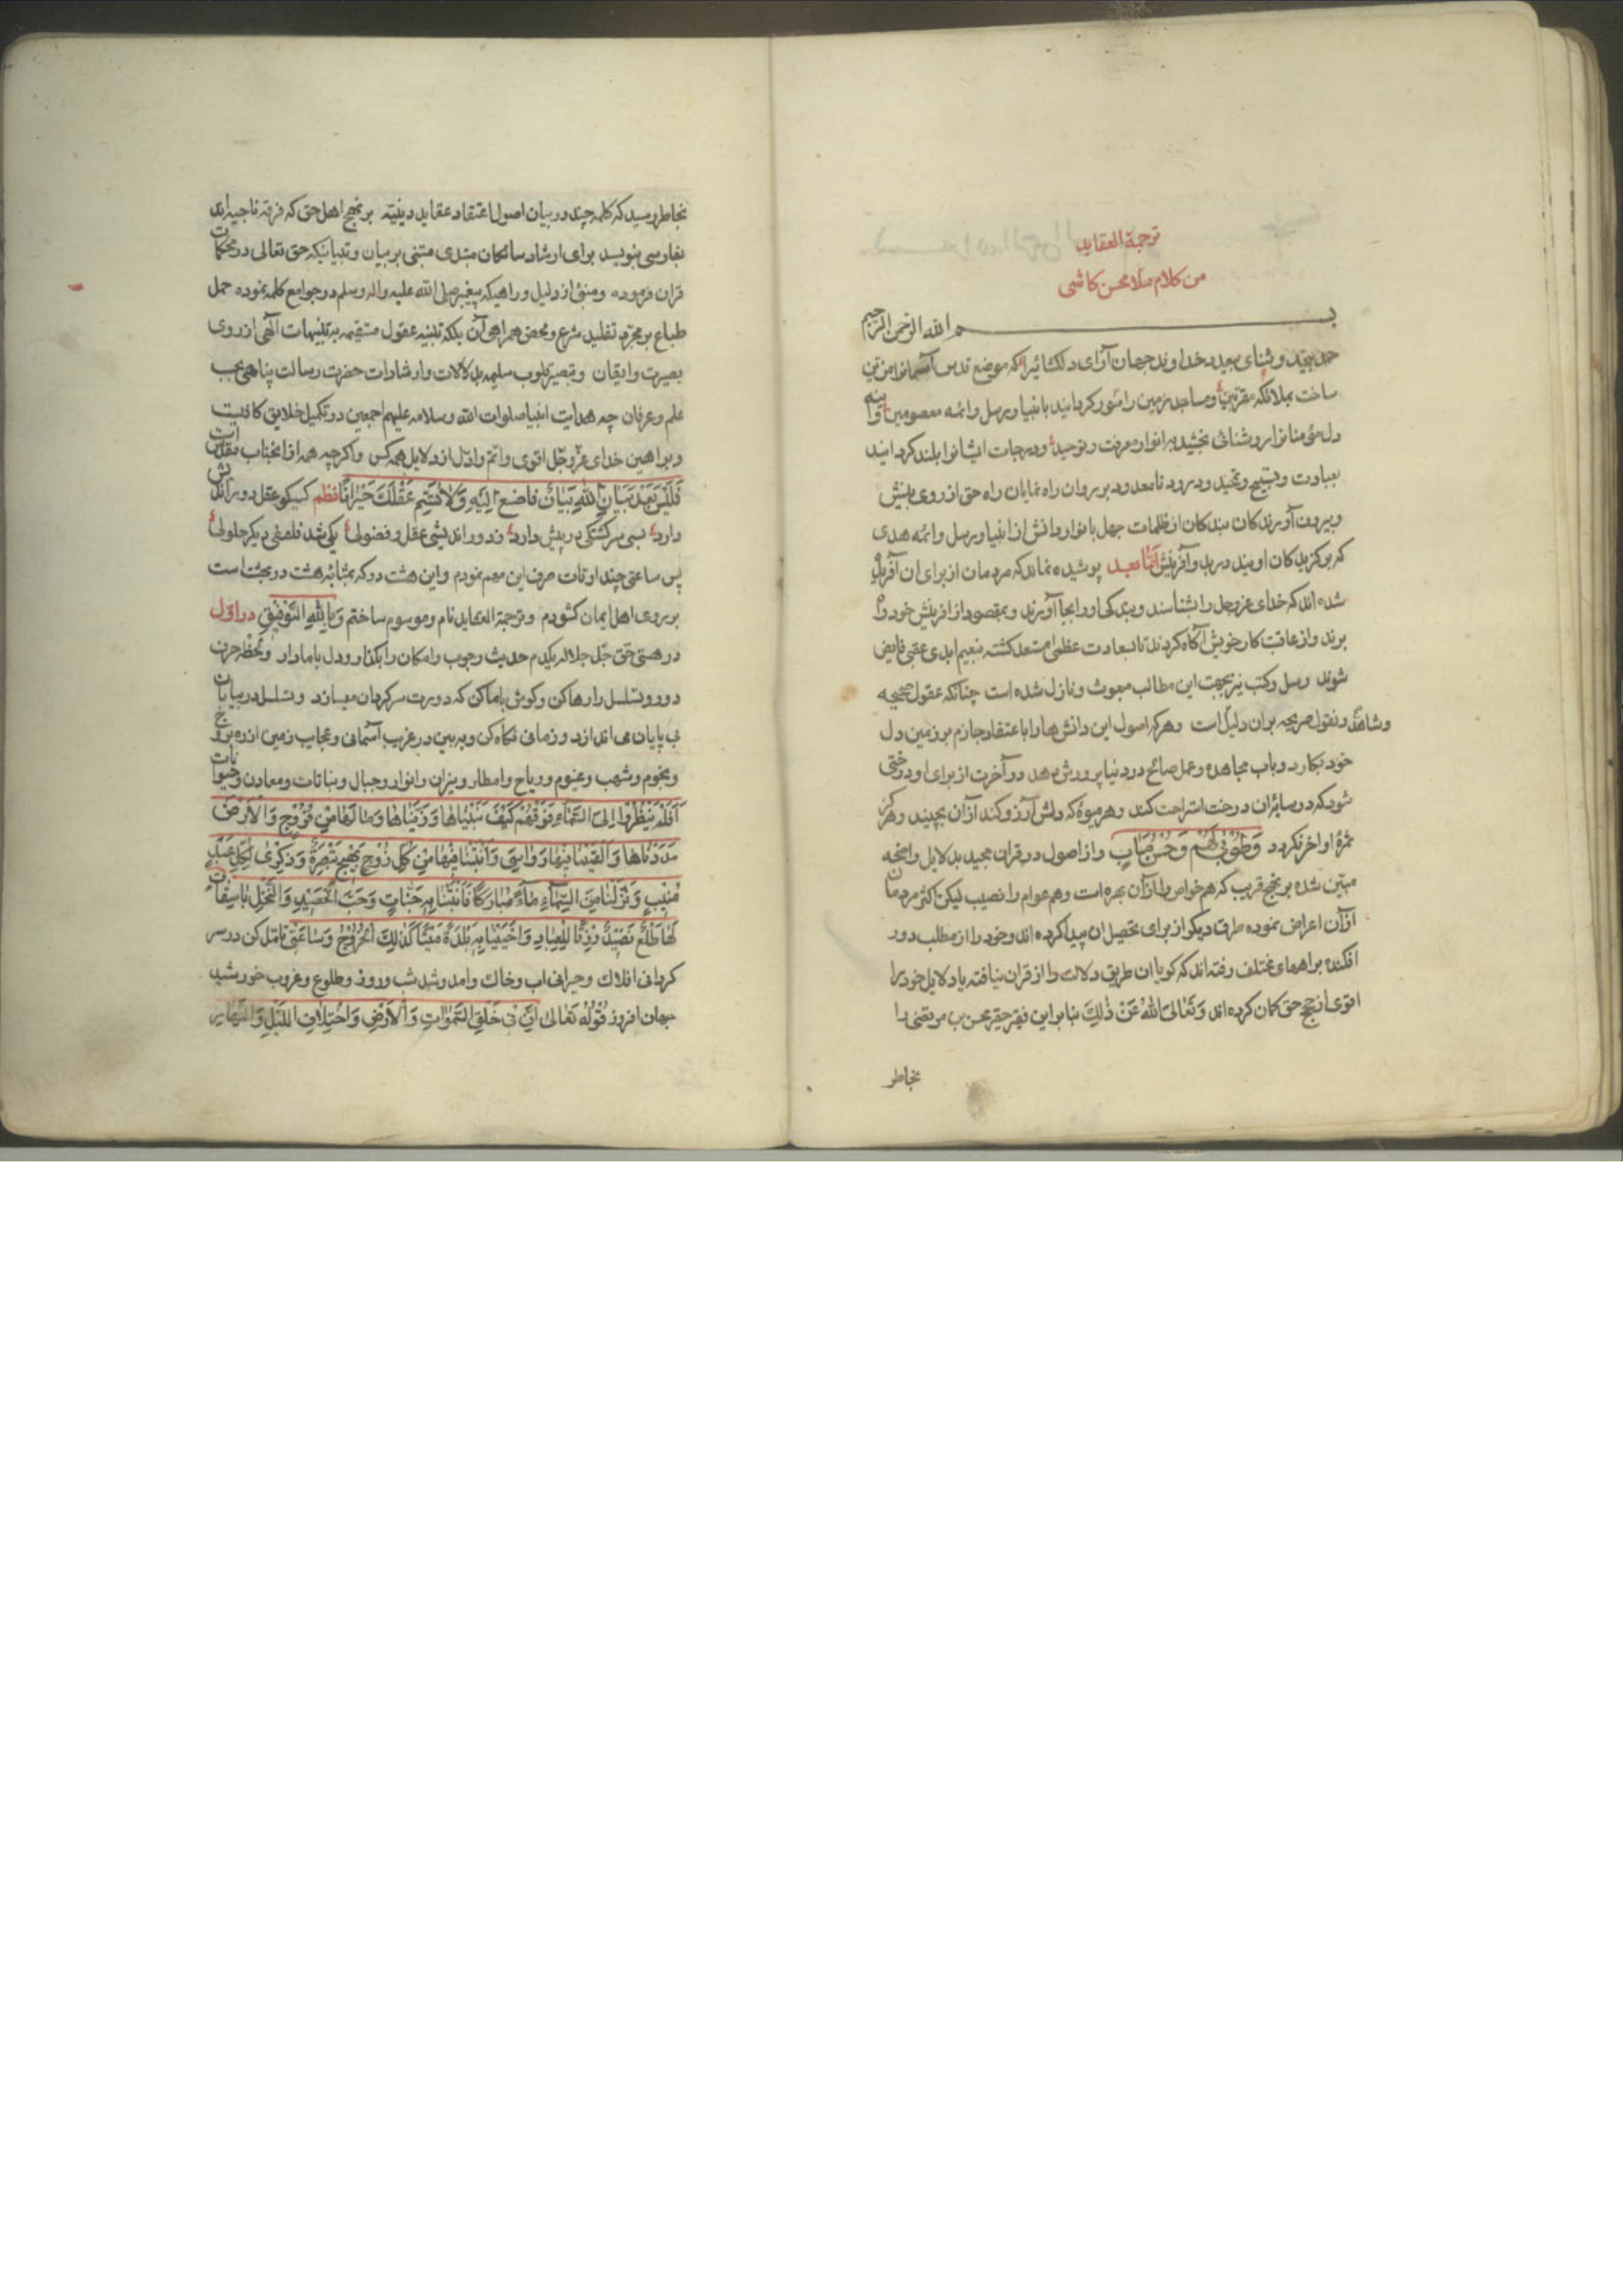 ترجمة العقاید
من کلام ملا محسن کاشی
بسم الله الرحمن الرحیم
حمد بیحد و ثنای بیعدد خداوند جهان آرای دلکشائیرا که مواضع قدس آسمانرا مزین
ساخت بملائکه مقربین و مساجد زمین را منور کردانید بانبیا و رسل و ائمه معصومین و آینه
دل مؤمنانرا روشنائی بخشید بانوار معرفت و توحید و درجات ایشانرا بلند کردانید
بعبادت و تسبیح و تحمید و درود نامعدود بر روان راه نمایان راه حق از روی بینش
و بیرون آورندکان بندکان از ظلمات جهل بانوار دانش از انبیا و رسل و ائمه هدی
که برکزیدکان اویند در بدو آفرینش اما بعد پوشیده نماند که مردمان از برای ان آفریده
شده اند که خدای عزوجل را بشناسند و بندکی اورا بجا آورند و بمقصود از افرینش خود راه
برند و از عاقبت کار خویش آکاه کردند تا بسعادت عظمی مستعد کشته بنعیم ابدی عقبی فایض
شوند و رسل و کتب نیز بجهت این مطالب مبعوث و نازل شده است چنانکه عقول صحیحه
و شاهد و نقول صریحه بران دلیل است و هرکه اصول این دانش ها را با اعتقاد جازم بر زمین دل
خود بکارد و باب مجاهده و عمل صالح در دنیا پرورش دهد در آخرت از برای او درختی
شود که در سایه ان درخت استراحت کند و هر میوۀ که دلش آرزو کند ازان بچیند و هرکز
ثمرۀ او اخر نکردد وَطُوبیٰ لَهُمْ وَحُسْنُ مَآبٍ و از اصول در قران مجید بدلایل واضحه
مبین شده بر نهج قریب که هم خواص را ازآن بهره است و هم عوام را نصیب لیکن اکثر مردمان
ازآن اعراض نموده طرق دیکر از برای تحصیل ان پیدا کرده اند و خود را از مطلب دور
افکنده براههای مختلف رفته اند که کویا ان طریق دلالت را از قران نیافته یا دلایل خود را
اقوی از حجج حق کمان کرده اند وَتَعَالَی اللهُ عَنْ ذٰلِکَ بنابراین فقیر حقیر محسن بن مرتضی را
بخاطر
بخاطر رسید که کلمه چند در بیان اصول اعتقاد عقاید دینیّه بر نهج اهل حق که فرقه ناجیه اند
بفارسی بنویسد برای ارشاد سالکان مبتدی مبتنی بر بیان و تبیانیکه حق تعالی در محکمات
قران فرموده و منبئ از دلیل و راهیکه پیغمبر صلی الله علیه واله وسلم در جوامع کلمه نموده حمل
طباع بر مجرد تقلید شرع و محض همراهی آن بلکه تنبیه عقول مستقیمه به تنبیهات آلهی از روی
بصیرت و ایقان و تبصیر قلوب سلیمه بدلالات و ارشادات حضرت رسالت پناهی بحسب
علم و عرفان چه هدایت انبیا صلوات الله وسلامه علیهم اجمعین در تکمیل خلایق کافیست
و براهین خدای عزّ وجلّ اقوی و اتم و ادلّ از دلایل همه کس و اکرچه همه ازانجناب مقدس است
فَلَیْسَ بَعْدَ بَیٰانِ اللهِ تَبْیٰانٌ فاضع الیه ولا تتیم عَقْلَکَ حَیْرانًا نظم کسیکو عقل دوراندیش
دارد بسی سرکشتکی در پیش دارد ز دوراندیشی عقل و فضولی یکی شد فلسفی دیکر حلولی
پس ساعتی چند اوقات صرف این مهم نمودم و این هشت در که بمثابه هشت در بهشت است
بر روی اهل ایمان کشودم و ترجمة العقاید نام و موسوم ساختم وَبِاللهِ التَّوفیقِ در اوّل
در هستی حق جلّ جلاله یکدم حدیث وجوب و امکان را بکذار و دل با ما دار و لحظه حرف
دور و تسلسل را رها کن و کوش با ما کن که دورت سرکردان میسازد و تسلسل در بیابان
بی پایان می اندازد و زمانی نکاه کن و ببین در غرایب آسمانی و عجایب زمین از بروج
و نجوم و شهب و غیوم و ریاح و امطار و نیران و انوار و جبال و نباتات و معادن و حیوانات
اَفَلَمْ یَنْظُرُوا اِلَی السَّمٰاءِ فَوْقَهُمْ کَیْفَ بَنَیْنٰاهٰا وَزَیَّنّٰاهٰا وَمٰا لَهٰا مِنْ فُرُوجٍ وَالْاَرْضَ
مَدَدْنٰاهٰا وَاَلْقَیْنٰا فیهٰا رَوٰاسِیَ وَاَنْبَتْنٰا فیهٰا مِنْ کُلِّ زَوْجٍ بَهیجٍ تَبْصِرَةً وَذِکْریٰ لِکُلِّ عَبْدٍ
مُنیبٍ وَنَزَّلْنٰا مِنَ السَّمٰاءِ مٰاءً مُبٰارَکًا فَاَنْبَتْنٰا بِهِ جَنّٰاتٍ وَحَبَّ الْحَصیدِ وَالنَّخْلَ بٰاسِقٰاتٍ
لَهٰا طَلْعٌ نَضیدٌ رِزْقًا لِلْعِبٰادِ وَاَحْیَیْنٰا بِهِ بَلْدَةً مَیْتًا کَذٰلِکَ الْخُرُوجُ وَسٰاعَتی تأمل کن در سر
کردانی افلاک و حیرانی اب و خاک و امد و شد شب و روز و طلوع و غروب خورشید
جهان افروز قَوْلُهُ تَعٰالیٰ اِنَّ فی خَلْقِ السَّمٰوٰاتِ وَالْاَرْضِ وَاخْتِلٰافِ اللَّیْلِ وَالنَّهٰارِ